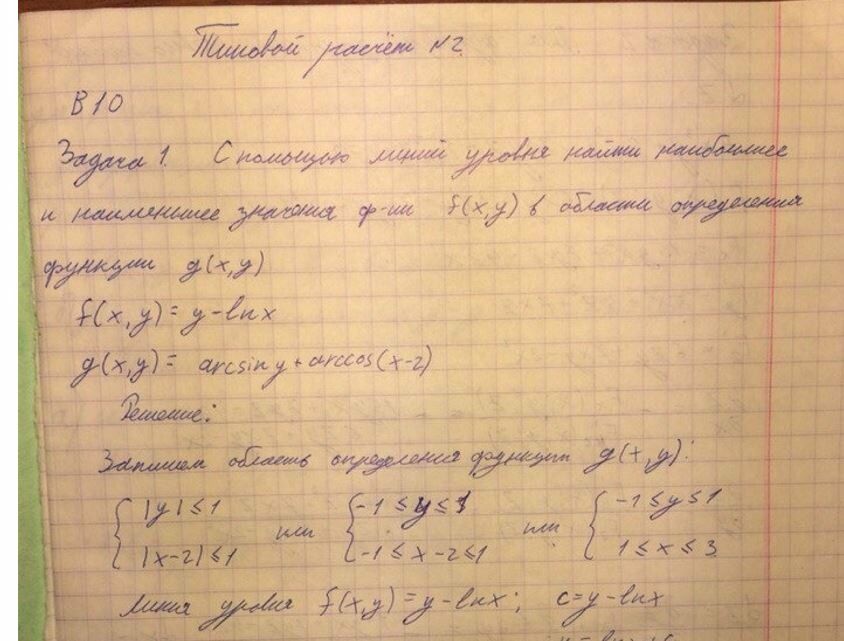 Типовой расчёт №2
В10
Задача 1. С помощью линий уровня найти наибольшее
и наименьшее значения ф-ии f(x,y) в области определения
функции g(x,y)
f(x,y) = y - lnx
g(x,y) = arcsin y + arccos(x-2)
Решение:
Запишем область определения функции g(x,y):
{ |y| ≤ 1 или { -1 ≤ y ≤ 1 или { -1 ≤ y ≤ 1
|x-2| ≤ 1 -1 ≤ x-2 ≤ 1 1 ≤ x ≤ 3
Линия уровня f(x,y) = y - lnx; c = y - lnx